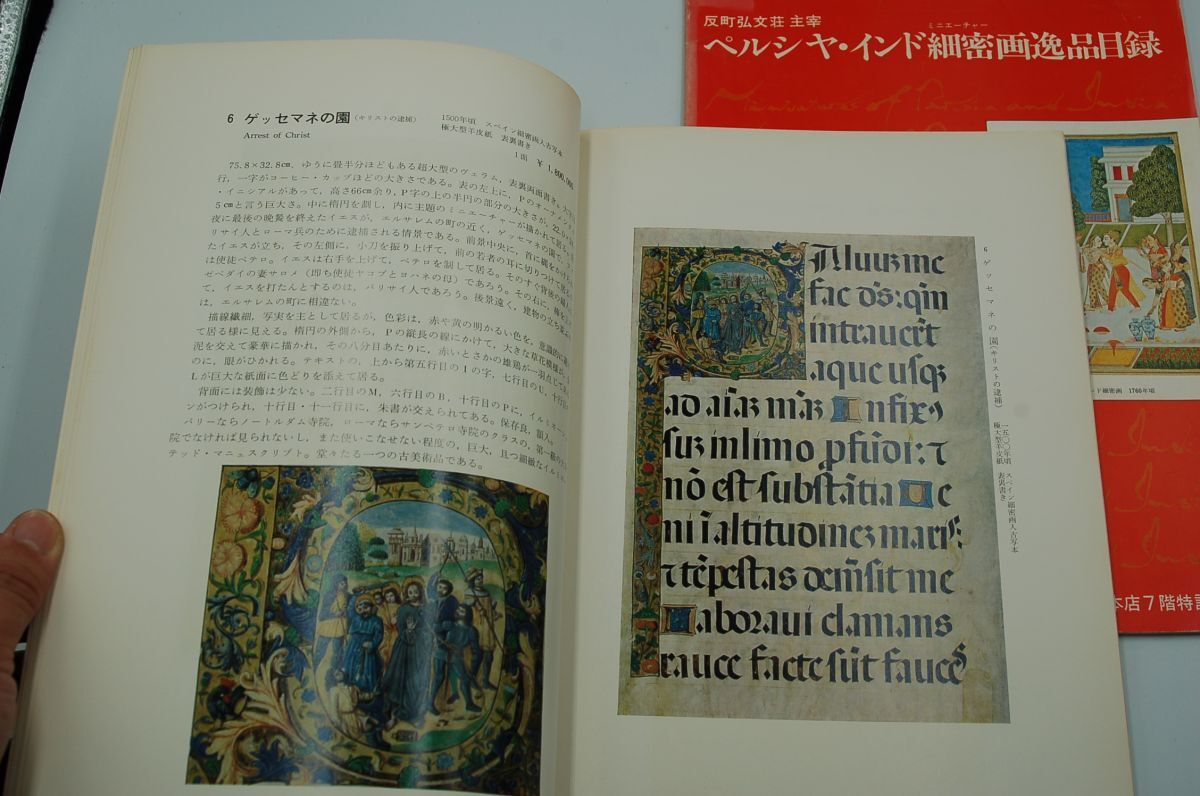 6 ゲッセマネの園(キリストの逮捕)
Arrest of Christ
1500年頃 スペイン細密画入古写本
極大型羊皮紙 表裏書き
1面 ¥1,800,000
75.8×32.8㎝, ゆうに畳半分ほどもある超大型のヴェラム, 表裏両面書き。
行, 一字がコーヒー・カップほどの大きさである。表の左上に, Pのオーナメンタ
・イニシアルがあって, 高さ66㎝余り, P字の上の半円の部分の大きさが, 22.0×
5㎝と言う巨大さ。中に楕円を劃し, 内に主題のミニエーチャーが描かれて居る。
夜に最後の晩餐を終えたイエスが, エルサレムの町の近く, ゲッセマネの園で,
リサイ人とローマ兵のために逮捕される情景である。前景中央に, 首に縄をかけ
たイエスが立ち, その左側に, 小刀を振り上げて, 前の若者の耳に切りつけて居
は使徒ペテロ。イエスは右手を上げて, ペテロを制して居る。そのすぐ背後の
ゼベダイの妻サロメ (即ち使徒ヤコブとヨハネの母) であろう。その右に, 棒を
て, イエスを打たんとするのは, パリサイ人であろう。後景遠く, 建物の立ち並
は, エルサレムの町に相違ない。
描線繊細, 写実を主として居るが, 色彩は, 赤や黄の明かるい色を, 意識的に
て居る様に見える。楕円の外側から, Pの縦長の線にかけて, 大きな草花模様が,
泥を交えて豪華に描かれ, その八分目あたりに, 赤いとさかの雄鶏が一羽点じ
のに, 眼がひかれる。テキストの, 上から第五行目のIの字, 七行目のU, 十行目
Lが巨大な紙面に色どりを添えて居る。
背面には装飾は少ない。二行目のM, 六行目のB, 十行目のPに, イルミネー
ンがつけられ, 十行目・十一行目に, 朱書が交えられてある。保存良, 額入。
パリーならノートルダム寺院, ローマならサンペテロ寺院のクラスの, 第一級の
院でなければ見られないし, また使いこなせない程度の, 巨大, 且つ細緻なイル
テッド・マニュスクリプト。堂々たる一つの古美術品である。
6 ゲッセマネの園(キリストの逮捕)
一五〇〇年頃 スペイン細密画入古写本
極大型羊皮紙 表裏書き
aluuz me
fac ds: qm
intrauerūt
aque usqz
ad aīaz māz Infixꝰ
suz in limo pfūdi: ⁊
nō est substātia Ue
ni ī altitudinez maris:
⁊ tēpestas demsit me
Laboraui clamans
rauce facte sūt fauces
反町弘文荘 主宰
ミニエーチャー
ペルシヤ・インド細密画逸品目録
Miniatures of Persia and India
ド細密画 1760年頃
本店7階特設